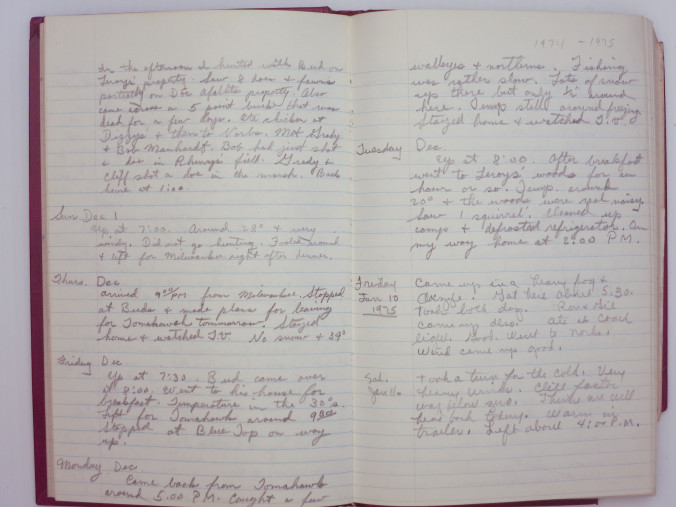 In the afternoon I hunted with Bud on
Leroys property. Saw 8 does & fawns
partially on Doc property. Also
came across a 5 point buck that was
dead for a few days. Ate chicken at
Diggys & then to Norbs. Met Grudy
& Bob Manhardt. Bob had just shot
a doe in field. Grudy &
Cliff shot a doe in the marsh. Beds
time at 1:00
Sun. Dec 1
Up at 7:00. Around 28° & very
windy. Did not go hunting. Fooled around
& left for Milwaukee right after dinner.
Thurs. Dec
arrived 9:00 PM from Milwaukee. Stopped
at Buds & made plans for leaving
for Tomahawk tommorrow. Stayed
home & watched T.V. No snow & 34°
Friday Dec
Up at 7:30. Bud came over
at 8:00. Went to his house for
breakfast. Temperature in the 30°s.
Left for Tomahawk around 9:00
Stopped at Blue Top on way
up.
Monday Dec.
Came back from Tomahawk
around 5:00 P.M. Caught a few
1974 - 1975
walleys & northerns. Fishing
was rather slow. Lots of snow
up there but only ½" around
here. Temp still around frezing.
Stayed home & watched T.V.
Tuesday Dec.
Up at 8:00. After breakfast
went to Leroys' woods for an
hour or so. Temp. around
20° & the woods were real noisy.
Saw 1 squirrel. Cleaned up
camps & defrosted refrigerator. On
my way home at 2:00 P.M.
Friday Came up in a heavy fog &
Jan 10 Got here about 5:30.
1975 Took both dog.
came up also. Ate at Coach
light. Good. Went to Norbs.
Wind came up good.
Sat. Took a turn for the cold. Very
Jan 11. heavy winds. Chill factor
was below zero. There are well
today. Warm in
trailer. Left about 4:00 P.M.